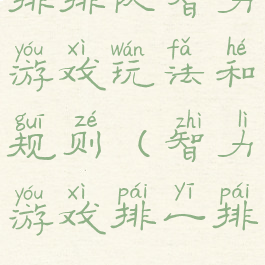 排排队智力
yóu xì wán fǎ hé
游戏玩法和
guī zé zhì lì
规则(智力
yóu xì pái yī pái
游戏排一排